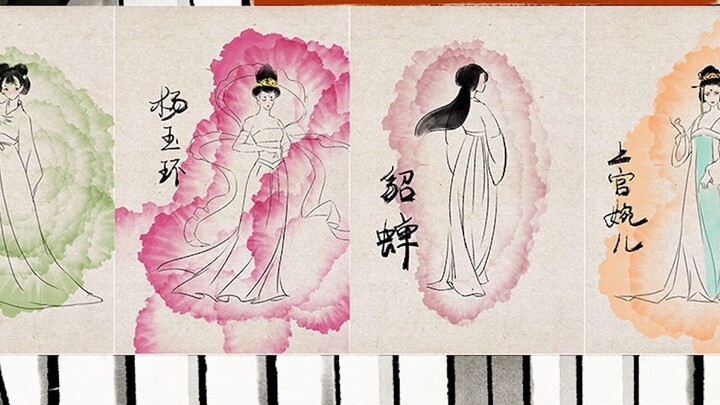 杨玉环
貂蝉
上官婉儿